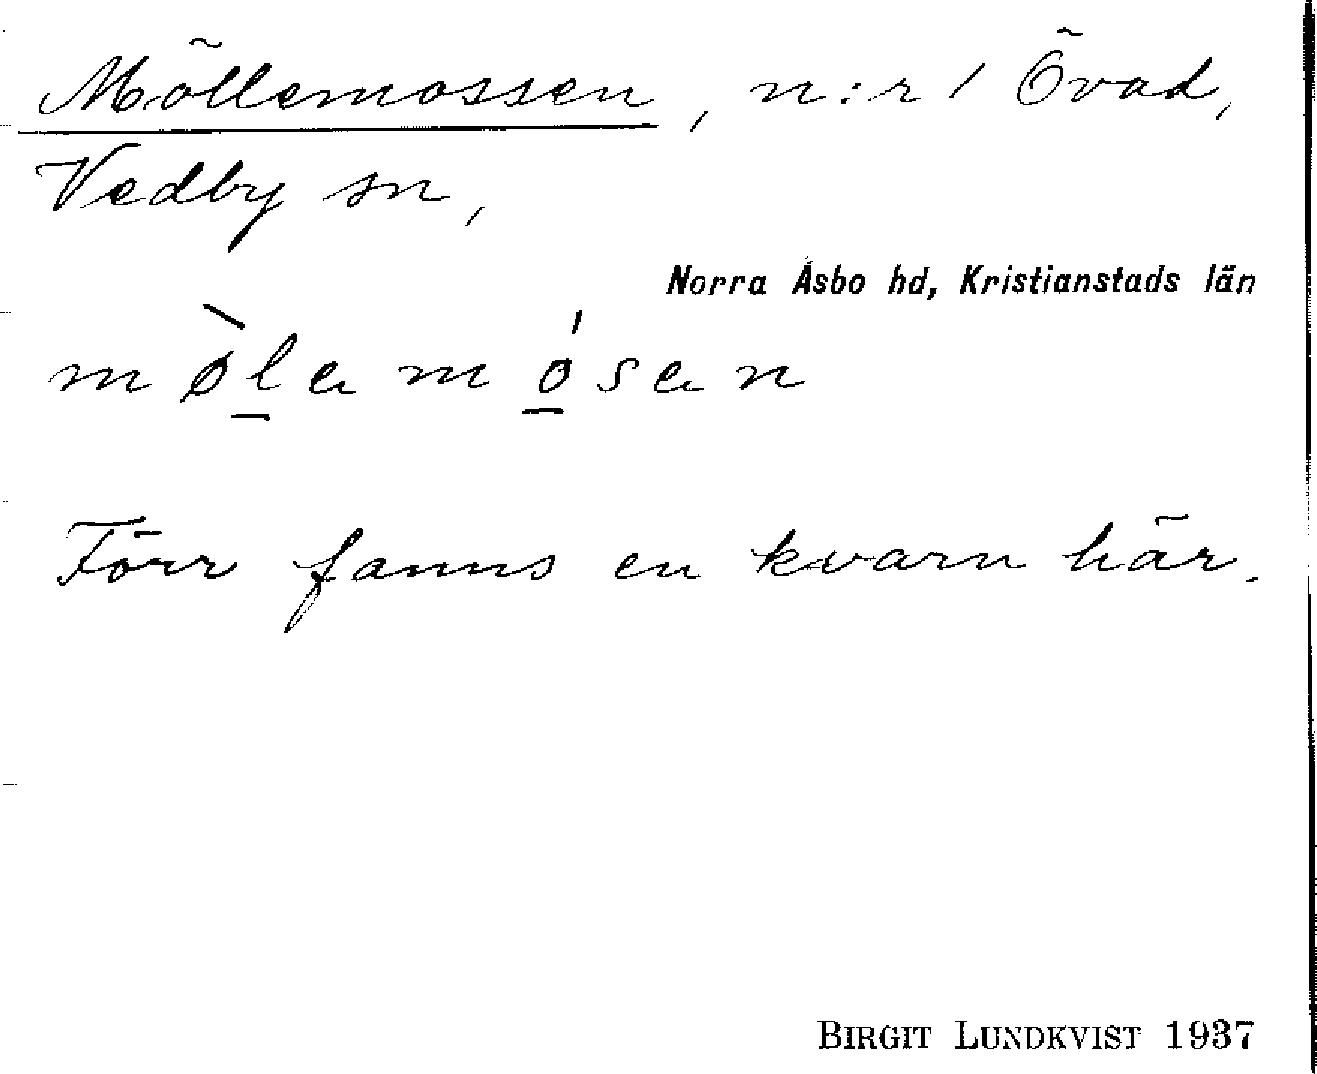 Möllemossen, n:r 1 Övad,
Vedby sn,
Norra Åsbo hd, Kristianstads län
mø̀l̠a mó̠san
Förr fanns en kvarn här.
BIRGIT LUNDKVIST 1937